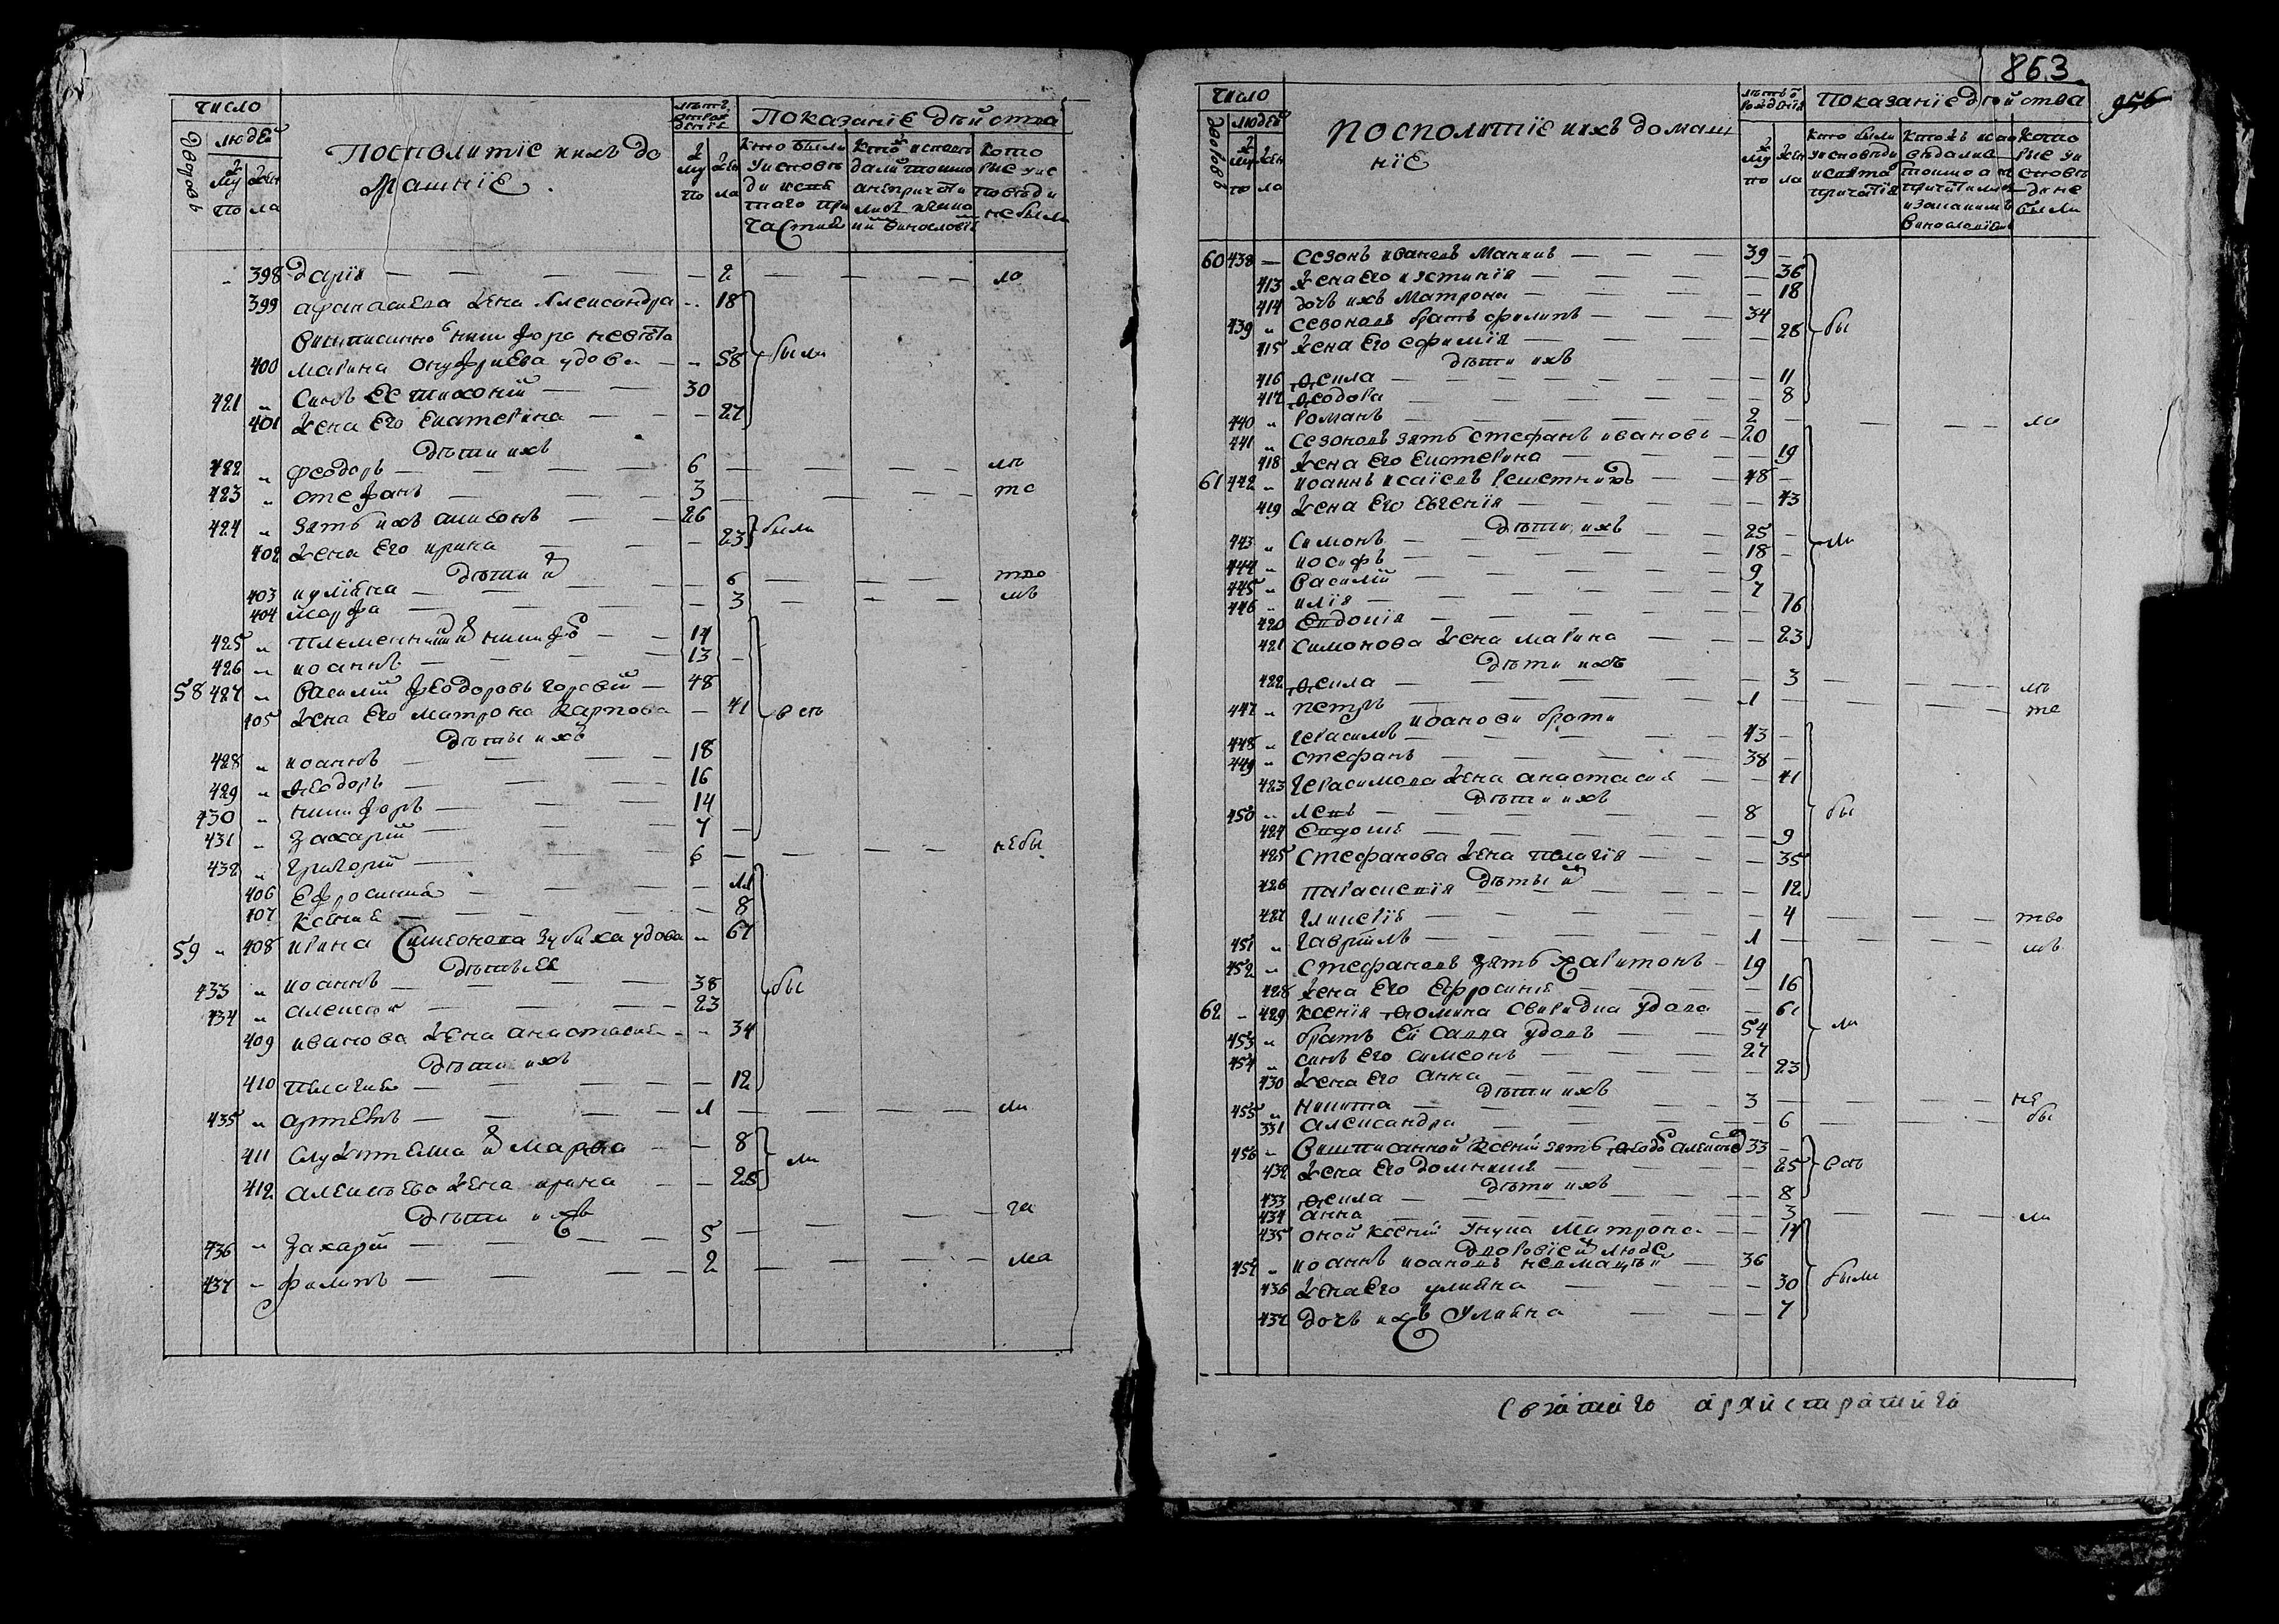 число
дворовъ
людей
му жен
по ла
Посполитіе и ихъ до
машніе
лѣтъ
от рож
денія
му жен
по ла
Показаніе дѣйства
кто были
у исповѣ
ди и свя
таго при
частия
кото
рые у ис
повѣди
не были
398 Дарія — 2 — ло
399 Афанасиева жена Александра 18
400 Марина Онуфриева удова 58 были
421 Синъ ее Тихоній 30
401 Жена его Екатерина 27
Дѣти ихъ
422 Феодоръ 6 — лѣ
423 Стефанъ 3 — те
424 Зять ихъ Симеонъ 26
402 Жена его Ирина 23 были
Дѣти и
403 Иулияна 6
404 Марфа 3 — лѣ
425 Племенникъ и Никифо 14
426 Иоаннъ 13
58 427 Василий Феодоровъ Горовий 48
405 Жена его Матрона Карпова 41
Дѣти ихъ
428 Иоаннъ 18
429 Феодоръ 16
430 Никифоръ 14
431 Захарій 7
432 Григорій 6 — небы
406 Ефросиния 11
407 Ксения 8
59 408 Ирина Симеонова Зубиха удова 67
Дѣти ее
433 Иоаннъ 38 бы
434 Алексѣй 23
409 Иванова жена Анастасия 34
Дѣти ихъ
410 Пелагия 12
435 Артемъ 1 — ли
411 8 ли
412 Алексѣева жена Ирина 25
Дѣти ихъ
436 Захарій 5
437 Филипъ 2
863
956
число
дворовъ
людей
му жен
по ла
Посполитіе и ихъ домаш
ніе
лѣтъ о
рожденія
му жен
по ла
Показаніе дѣйства
кто были
у исповѣди
и свята
причастія
кото
рые у и
сповѣ
ди не
были
60 438 Сезонъ Ивановъ Манкиъ 39
413 Жена его Иустинія 36
414 Дочь ихъ Матрона 18
439 Сезоновъ братъ Филипъ 34 бы
415 Жена его Ефимія 28
Дѣти ихъ
416 Ѳекла 11
417 Ѳеодора 8
440 Романъ 2
441 Сезоновъ зять Стефанъ Ивановъ 20
418 Жена его Екатерина 19
61 442 Иоаннъ Исаіевъ Решетникъ 48
419 Жена его Евгенія 43
Дѣти ихъ
443 Симонъ 25 ли
444 Иосифъ 18
445 Василій 9
446 Илія 7
420 Евдокія 16
421 Симонова жена Марина 23
Дѣти ихъ
422 Ѳекла 3 — лѣ
447 Петръ 1 — те
Иоанови брати
448 Герасимъ 43
449 Стефанъ 38
423 Герасимова жена Анастасия 41
Дѣти ихъ
450 Левъ 8 бы
424 Евдокия 9
425 Стефанова жена Пелагія 35
Дѣты и
426 Параскевія 12
427 Гликерія 4 — тво
451 Гавриилъ 1 — лѣ
452 Стефановъ зять Харитонъ 19
428 Жена его Ефросиния 16
62 429 Ксенія Ѳомина Свиридиа удова 61
453 братъ ей Савва удовъ 54 ли
454 Синъ его Симеонъ 27
430 Жена его Анна 23
Дѣти ихъ
455 Никита 3 — не
331 Александра 6 — бы
456 Вишписанной Ксеніи зять Ѳеодо Алексѣе 33
432 Жена его Домникия 25
Дѣти ихъ
433 Ѳекла 8
434 Анна 3 — ли
435 Оной Ксеніи унука Матрона 14
Дворовіе и люде
457 Иоаннъ Иоановъ 36
436 Жена его Улияна 30 были
437 Дочь ихъ Улияна 7
Святаго Архистратига